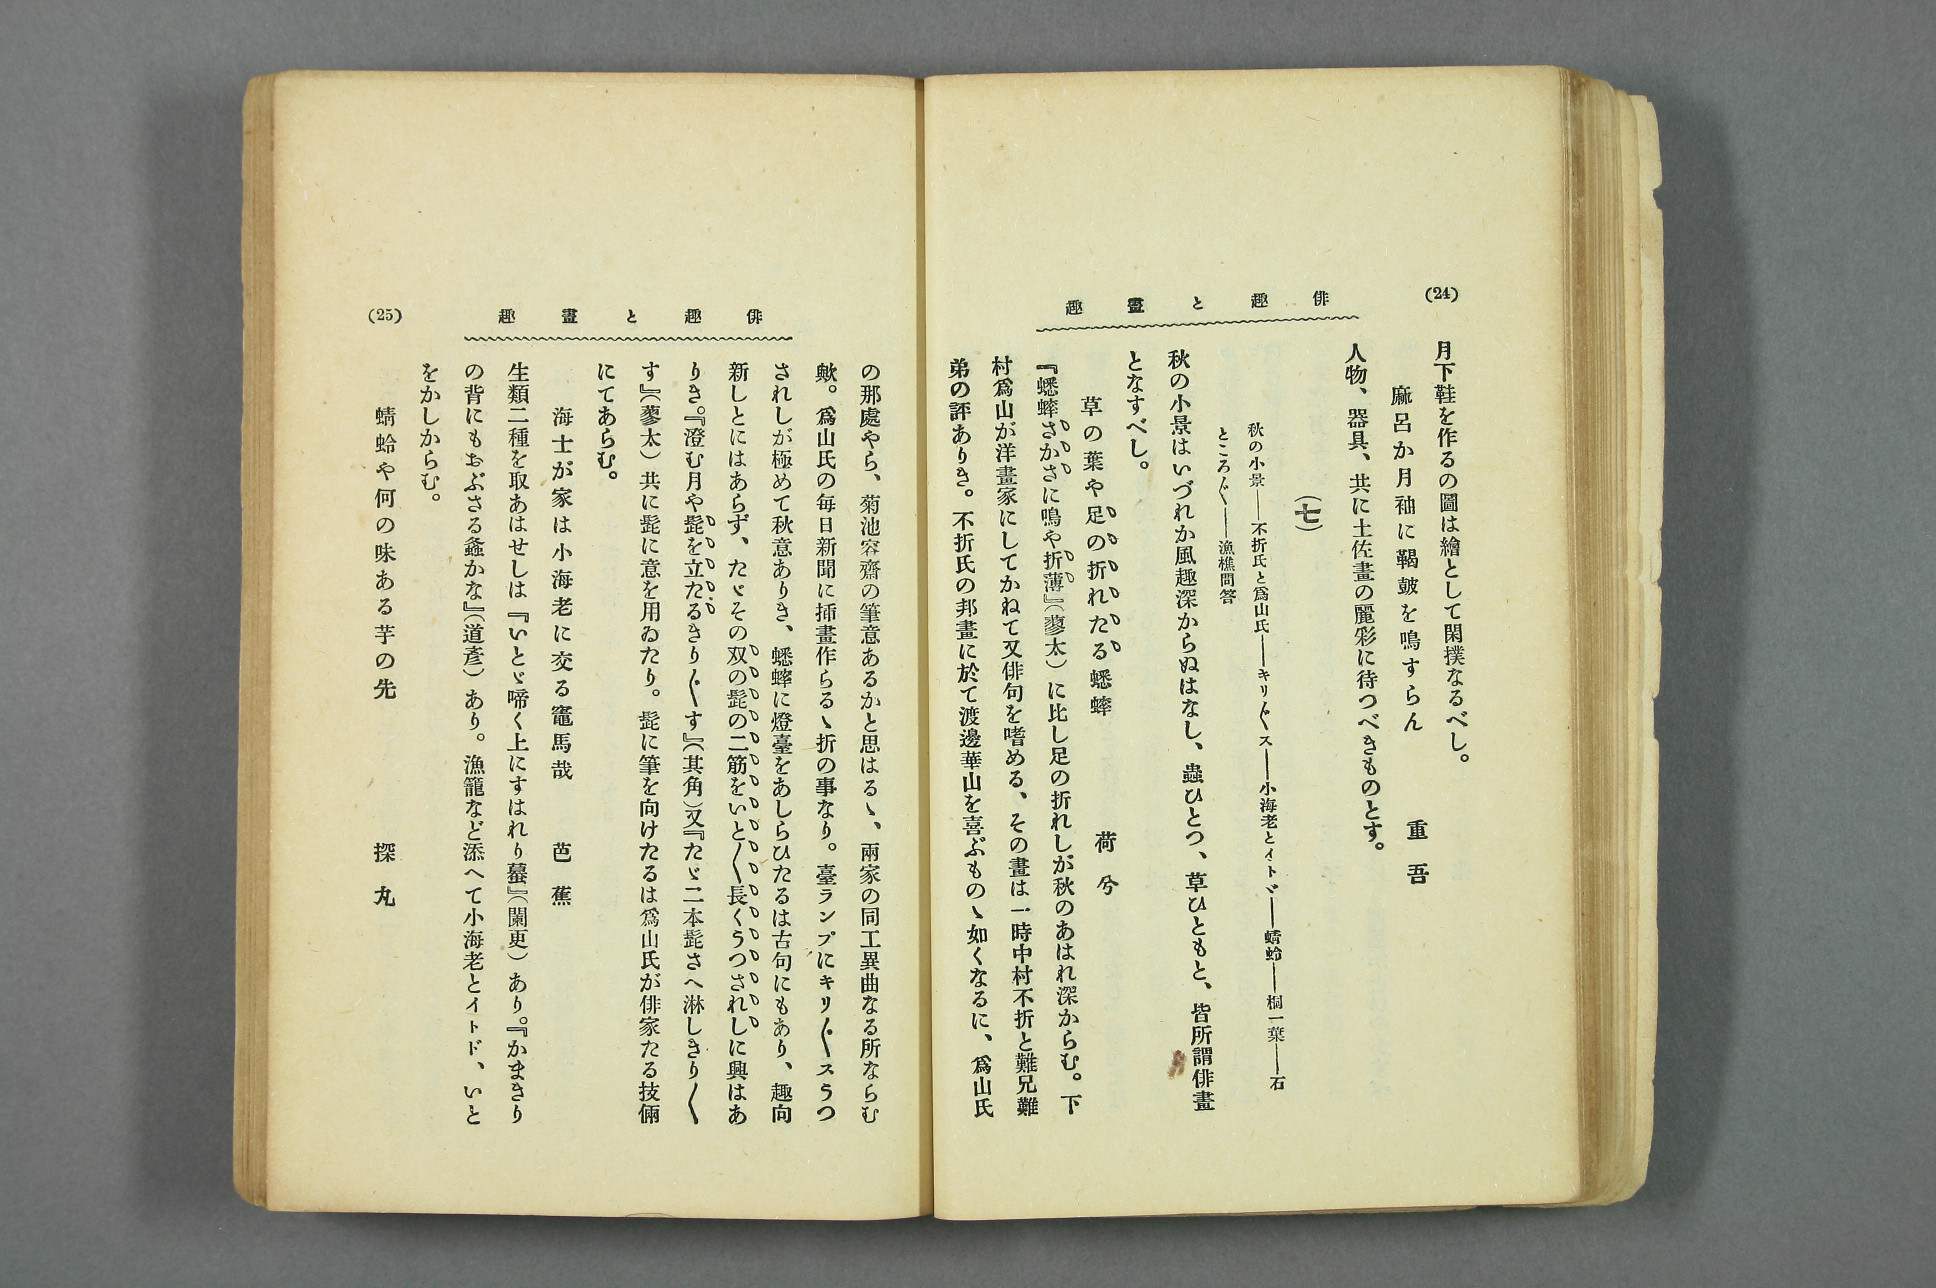 (24)
俳趣と畫趣
月下鞋を作るの圖は繪として閑撲なるべし。
麻呂か月袖に鞨皷を鳴すらん　重吾
人物、器具、共に土佐畫の麗彩に待つべきものとす。
(七)
秋の小景――不折氏と爲山氏――キリ〲ス――小海老とイトヾ――蜻蛉――桐一葉――石
ところ〲――漁樵問答
秋の小景はいづれか風趣深からぬはなし、蟲ひとつ、草ひともと、皆所謂俳畫
となすべし。
草の葉や足の折れたる蟋蟀　荷兮
『蟋蟀さかさに鳴や折薄』(蓼太)に比し足の折れしが秋のあはれ深からむ。下
村爲山が洋畫家にしてかねて又俳句を嗜める、その畫は一時中村不折と難兄難
弟の評ありき。不折氏の邦畫に於て渡邊華山を喜ぶものゝ如くなるに、爲山氏
俳趣と畫趣
(25)
の那處やら、菊池容齋の筆意あるかと思はるゝ、兩家の同工異曲なる所ならむ
歟。爲山氏の毎日新聞に挿畫作らるゝ折の事なり。臺ランプにキリ〲スうつ
されしが極めて秋意ありき、蟋蟀に燈臺をあしらひたるは古句にもあり、趣向
新しとにはあらず、たゞその双の髭の二筋をいと〱長くうつされしに興はあ
りき。『澄む月や髭を立たるきり〲す』(其角)又『たゞ二本髭さへ淋しきり〱
す』(蓼太)共に髭に意を用ゐたり。髭に筆を向けたるは爲山氏が俳家たる技倆
にてあらむ。
海士が家は小海老に交る竈馬哉　芭蕉
生類二種を取あはせしは『いとゞ啼く上にすはれり蟇』(闌更)あり。『かまきり
の背にもおぶさる螽かな』(道彥)あり。漁籠など添へて小海老とイトド、いと
をかしからむ。
蜻蛉や何の味ある芋の先　探丸